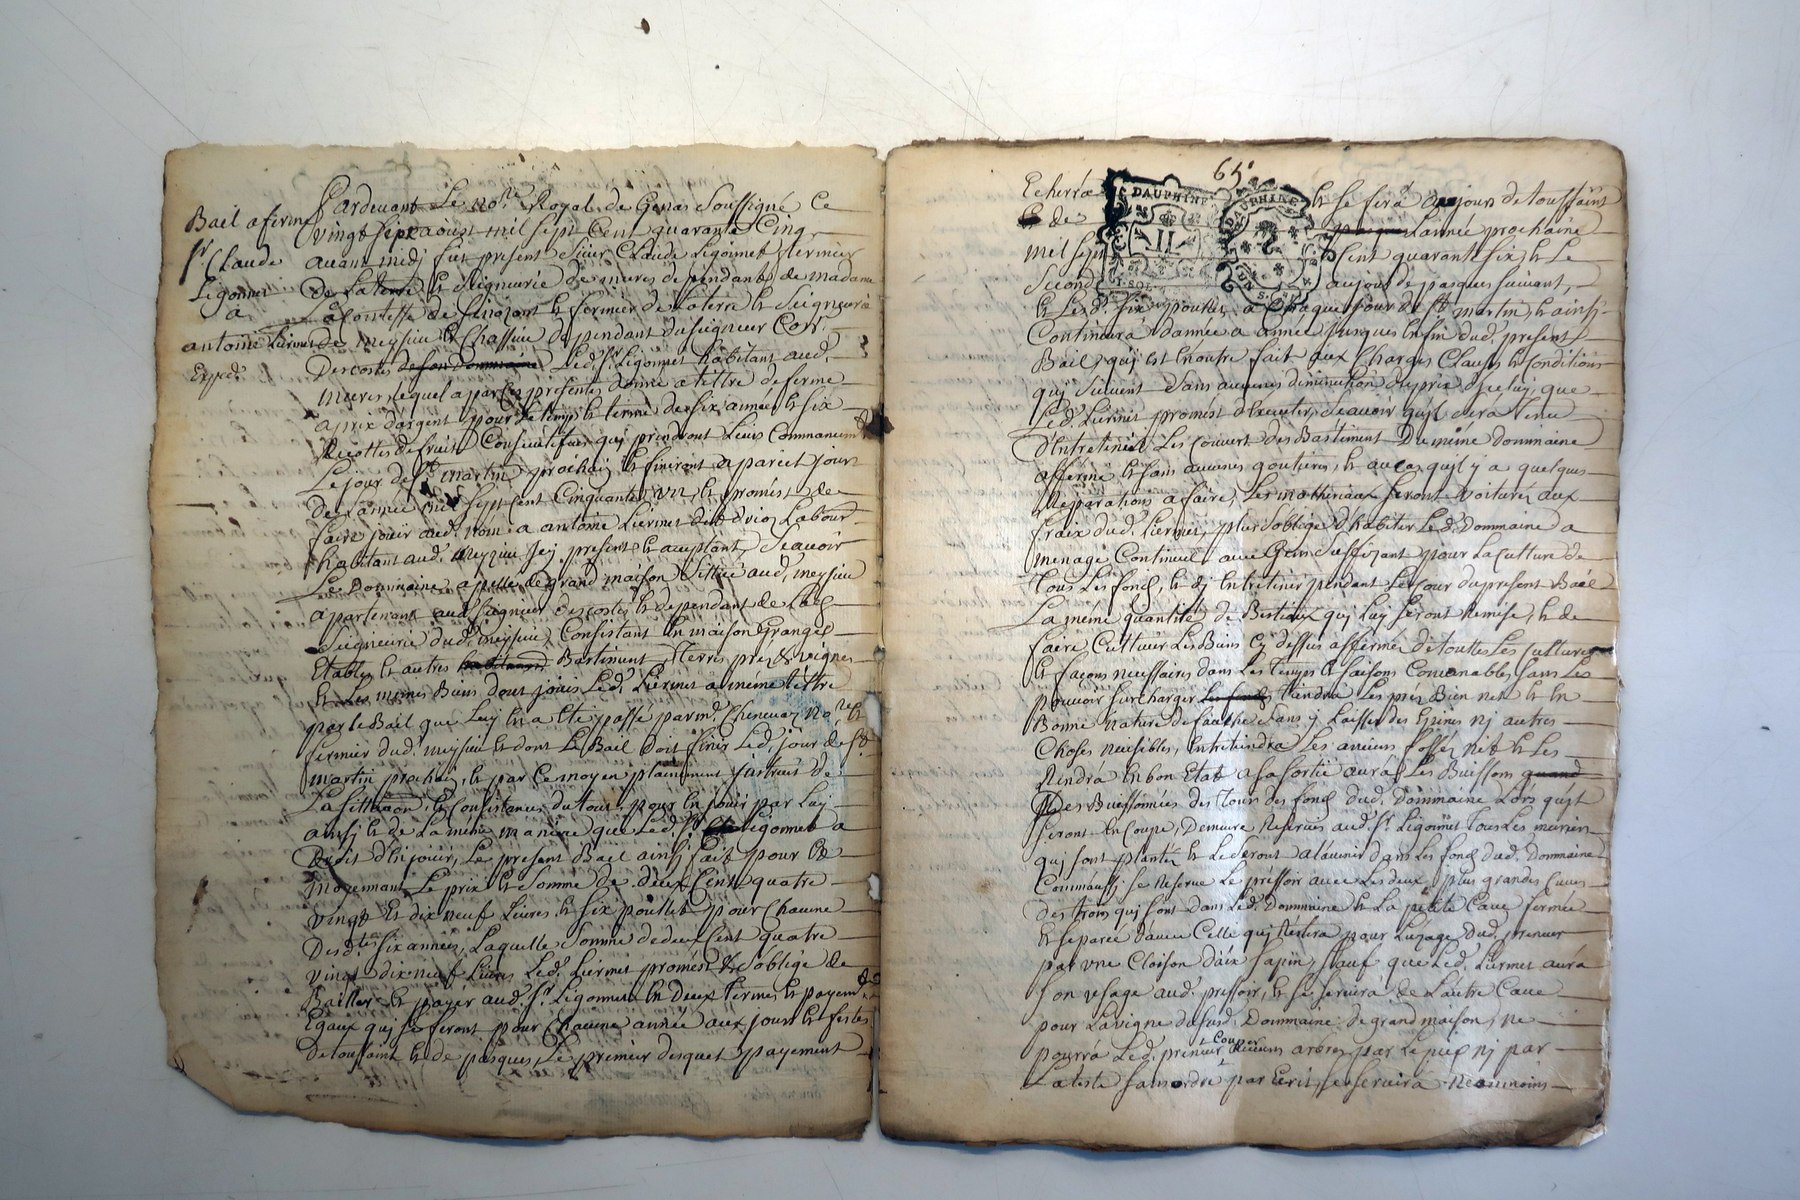 Bail a ferme
Sr Claude
Ligonnet
a
antoine Liermet
Exped.
Pardevant Le nore Royal de Genas Soussigné Ce
vingt sept aoust mil sept Cent quarante Cinq
avant midj fut present sieur Claude Ligonnet fermier
de La terre et Seigneurie de mures dependante de madame
La Comtesse de et fermier de La terre et Seigneurie
de meysieu et Chassieu dependant du seigneur
Descostes Led. Sr. Ligonnet habitant aud.
mures, lequel a par Ces presentes donné a tittre de ferme
a prix d'argent pour Le temps et terme de six années et six
Recottes de fruits Consecutifves quj prendront Leurs Commancement
Le jour de St martin prochain et finiront a pareil jour
de L'année mil sept Cent Cinquante un, et promest de
faire jouir aud. nom a antoine Liermet Labour
habitant aud. meyzieu Jcy present et acceptant, Scavoir
Le Dommaine apellé de grand maison sittué aud. meysieu
apartenant aud. seigneur descostes et dependant de Lad.
Seigneurie dud. meysieu, Consistant En maison Granges
Etables et autres Bastiments terres prés & vignes
et Les mêmes Biens dont jouis Led. Liermet a même tittre
par le Bail que Luy En a Eté passé par mr. Chenevaz nore et
fermier dud. meysieu et dont Le Bail doit finir Led. jour de St
martin prochain, et par Ce moyen plainement jnstruit de
La sittuaon, et Consistance du tout, pour En jouir par Luy
ainsj et de La même maniere que Led. Sr. Ligonnet a
Droit d'En jouir, Le present Bail ainsj fait pour Et
moyennant Le prix et Somme de deux Cent quatre
vingt Et dix neuf Livres et six poullets pour Chacune
Desd. six années, Laquelle Somme de deux Cent quatre
vingt dix neuf Livres Led. Liermet promest & s'oblige de
Bailler et payer aud. Sr. Ligonnet En Deux termes et payements
Egaux quj se feront pour Chacune année aux jours et festes
de toussaint et de pasques, Le premier desquels payement
65.
DAUPHINÉ
II
DAUPHINE
Echerra et se fera au jour de toussaint
de L'année prochaine
mil sept Cent quarante six, et Le
Second au jour de pasques suivant,
et Lesd. six poullets a Chaque jour de St. martin, et ainsj
Continuera d'année a année jusques En fin dud. present
Bail, quj est En outre fait aux Charges Clauses et Conditions
quj suivent sans aucunes diminution du prix d'jceluy, que
Led. Liermet promest d'Executer, Scavoir qu'jl sera tenu
d'Entretenir Les Couvert des Bastiment Du même dommaine
affermé et sans aucunes goutieres, et au Cas qu'jl y a quelques
Reparations a faire, Les matheriaux seront voiturés aux
fraix dud. Liermet, plus s'oblige d'habiter Led. Dommaine a
menage Continuel avec Gens suffizant pour La Culture de
tous Les fonds, et d'j Entretenir pendant Le Cour du present Bail
La même quantité de Bestiaux quj Luy seront Remise, et de
faire Cultiver Les Biens Cy dessus affermé de toutes Les Cultures
et façons necessaires dans Les temps et saisons Convenables sans Les
pouvoir surcharger tiendra Les prés Bien net et En
Bonne nature de sans y Laisser des Epines nj autres
Choses nuisibles, Entretiendra Les anciens fossés net et Les
Rendra En bon Etat a sa sortie aura Les Buissons
des Buissonnées des tours des fonds dud. Dommaine Lors qu'jls
seront En Coupe, Demeure Reservés aud. Sr. Ligonnet tous Les muriers
quj sont plantés et Le seront a L'avenir dans Les fonds dud. Dommaine
Comm'aussj se Reserve Le pressoir avec Les deux plus grandes Cuves
des trois quj sont dans Led. Dommaine et La petite Cave fermée
et separée d'avec Celle quj Restera pour L'uzage dud. preneur
par une Cloison d'aix sapin, sauf que Led. Liermet aura
son usage aud. pressoir, et se servira de L'autre Cave
pour La vigne dusd. Dommaine de grand maison, ne
pourra Led. preneur Couper aucuns arbres par Le pied nj par
La teste sans ordre par Ecrit, se servira neanmoins